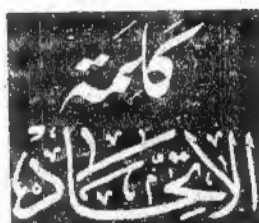 كلمة
الاتحاد